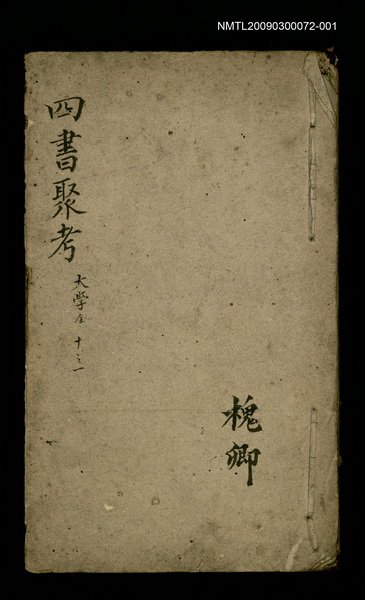 NMTL20090300072-001
四書聚考
大學全 十之一
槐卿